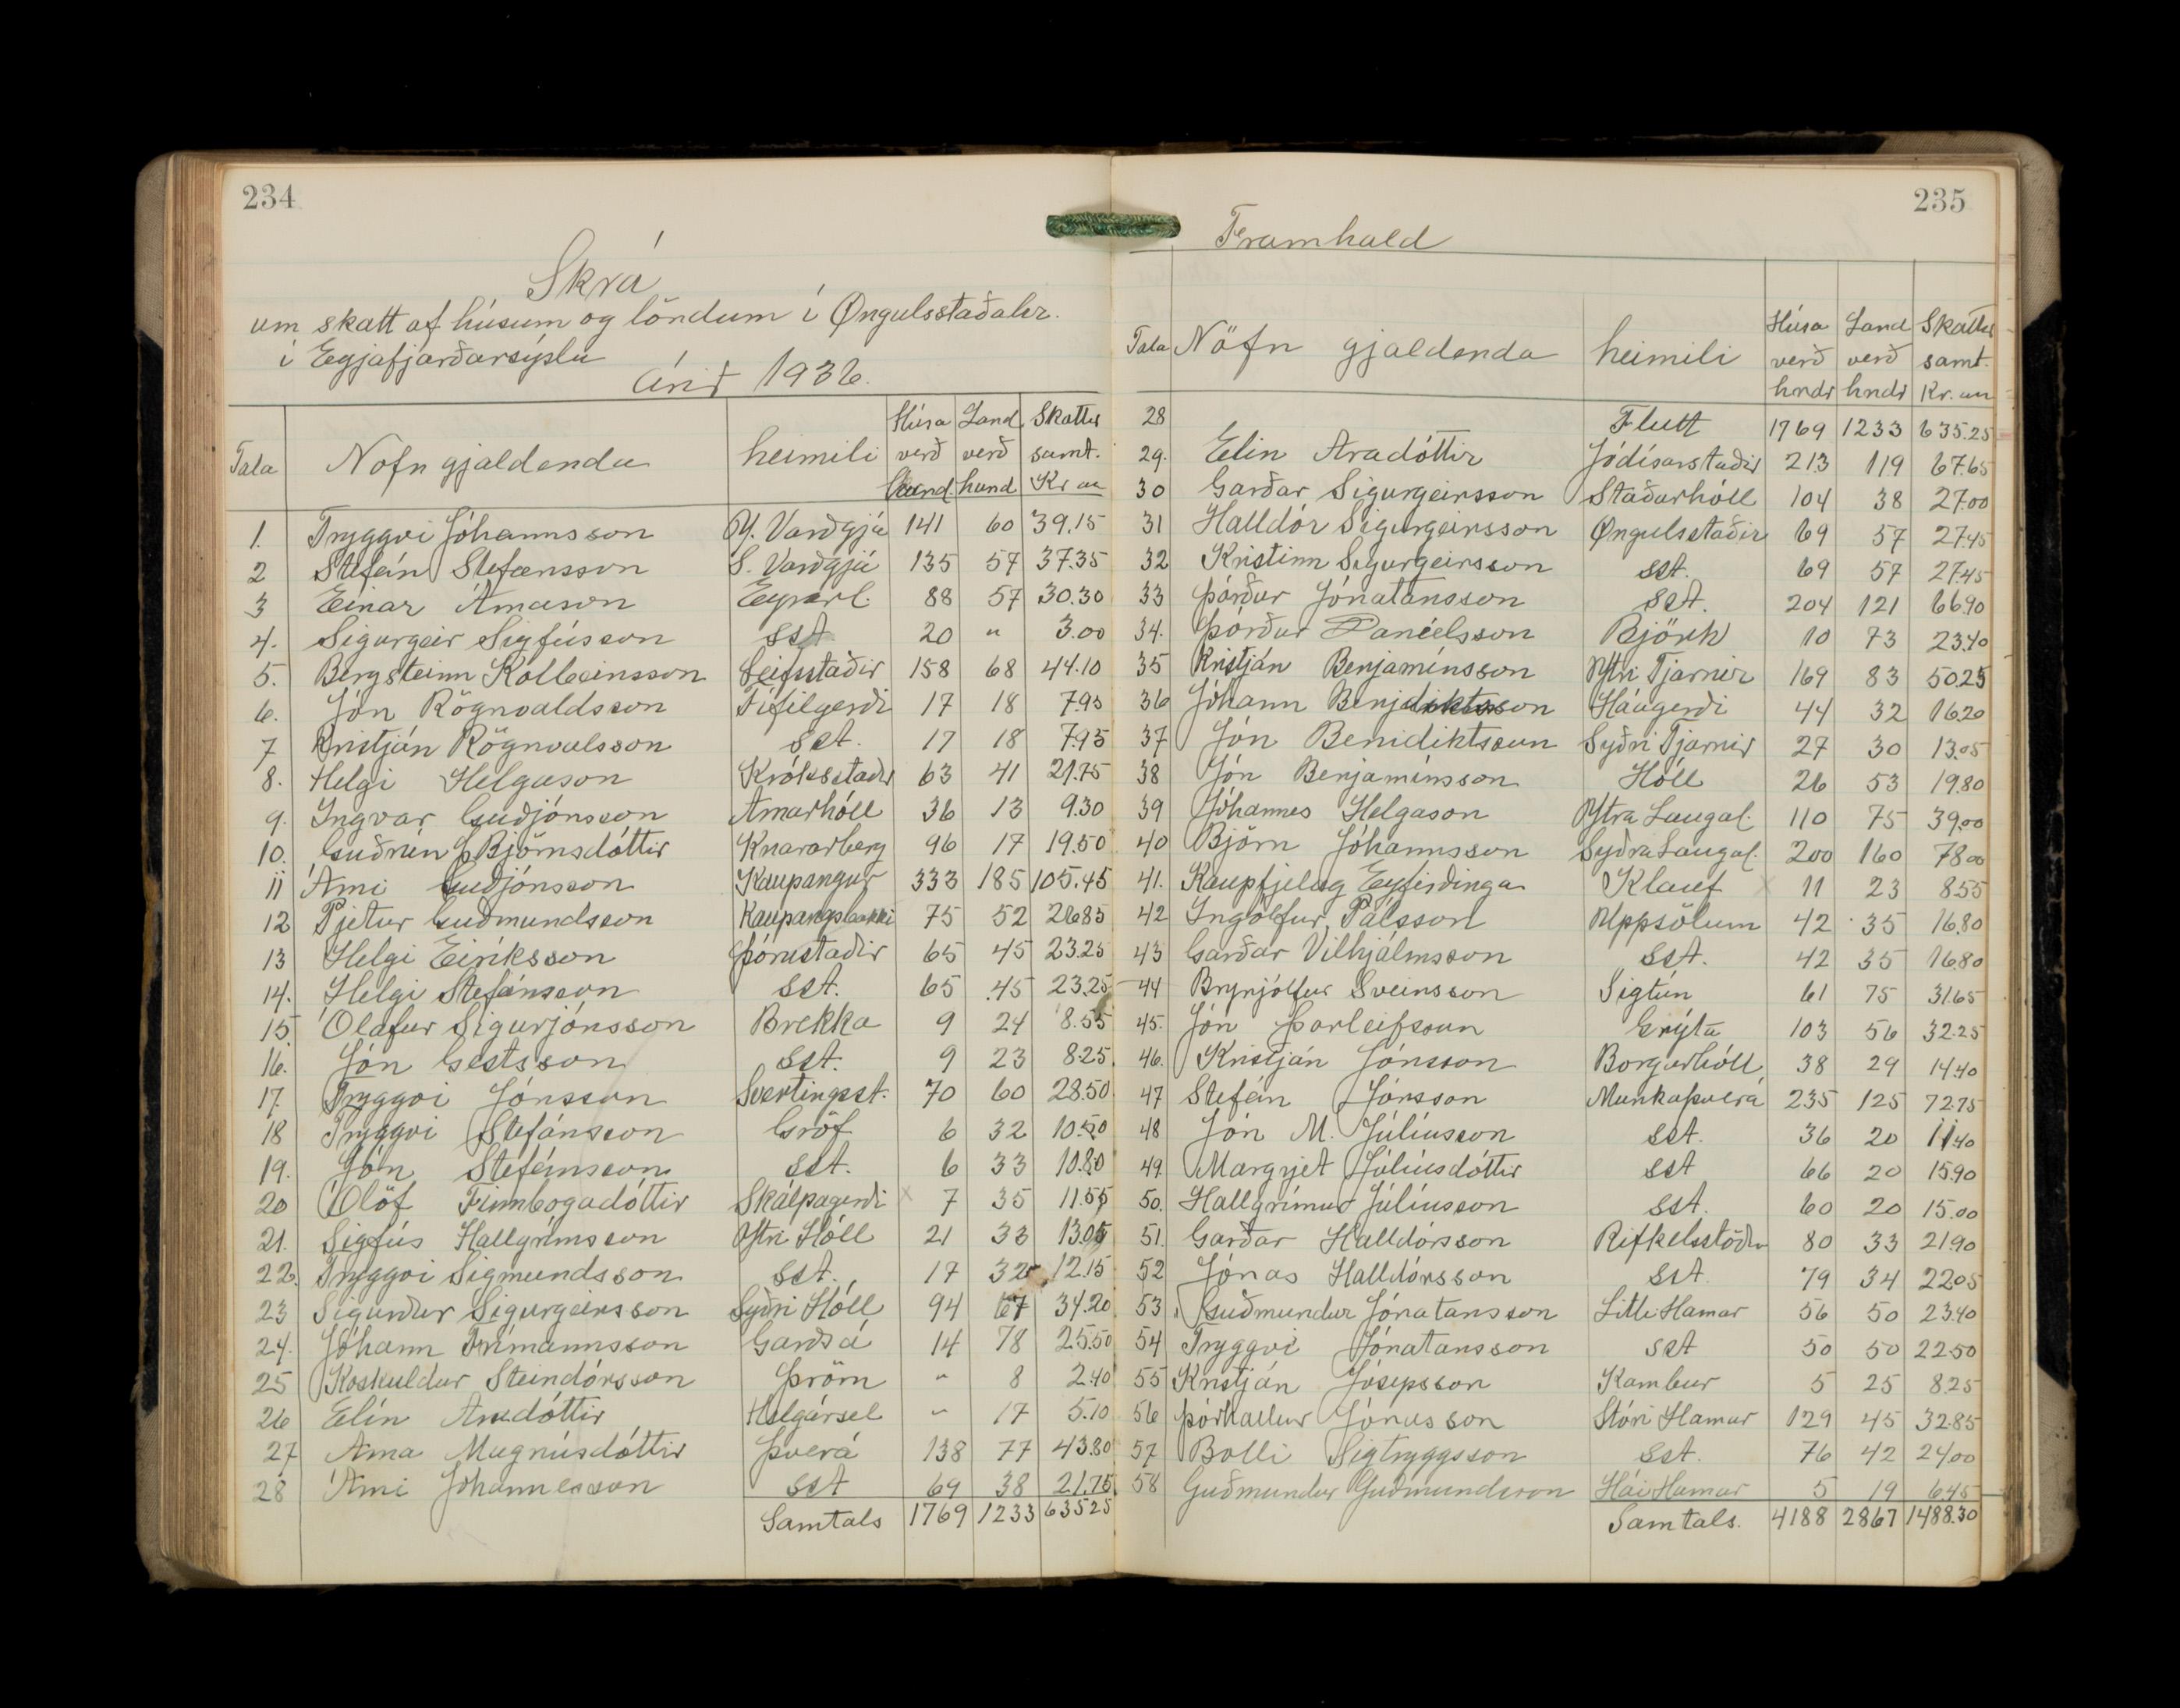 234
Skrá
um skatt af húsum og löndum í Øngulsstaðahr.
í Eyjafjarðarsýslu
árið 1936.
Tala Nöfn gjaldenda heimili Húsa verð hund. Land verð hund Skattur samt. Kr au
1. Tryggvi Jóhannsson Y. Varðgjá 141 60 39.15
2 Stefán Stefánsson S. Varðgjá 135 57 37.35
3 Einar Árnason Eyrarl. 88 57 30.30
4. Sigurgeir Sigfússon sst 20 " 3.00
5. Bergsteinn Kolbeinsson Leifsstaðir 158 68 44.10
6. Jón Rögnvaldsson Fífilgerði 17 18 7.95
7 Kristján Rögnvalsson sst. 17 18 7.95
8. Helgi Helgason Króksstaðir 63 41 21.75
9. Ingvar Guðjónsson Arnarhóll 36 13 9.30
10. Guðrún Björnsdóttir Knararberg 96 17 19.50
11 Árni Guðjónsson Kaupangur 333 185 105.45
12 Pjetur Guðmundsson Kaupangsbakki 75 52 26.85
13 Helgi Eiríksson Þórustaðir 65 45 23.25
14. Helgi Stefánsson sst. 65 45 23.25
15. Ólafur Sigurjónsson Brekka 9 24 8.55
16. Jón Gestsson sst. 9 23 8.25
17. Tryggvi Jónsson Svertingsst. 70 60 28.50
18 Tryggvi Stefánsson Gröf 6 32 10.50
19. Jón Stefánsson sst. 6 33 10.80
20 Ólöf Finnbogadóttir Skálpagerði x 7 35 11.55
21. Sigfús Hallgrímsson Ytri Hóll 21 33 13.05
22. Tryggvi Sigmundsson sst. 17 32 12.15
23 Sigurður Sigurgeirsson Syðri Hóll 94 67 34.20
24. Jóhann Frímannsson Garðsá 14 78 25.50
25 Hoskuldur Steindórsson Þröm " 8 2.40
26 Elín Aradóttir Helgársel " 17 5.10
27 Anna Magnúsdóttir Þverá 138 77 43.80
28 Árni Jóhannesson sst 69 38 21.75
Samtals 1769 1233 635.25
235
Framhald
Tala Nöfn gjaldenda heimili Húsa verð hndr Land verð hndr Skattur samt. Kr. au
28 Flutt 1769 1233 635.25
29. Elin Aradóttir Jódísarstaðir 213 119 67.65
30 Garðar Sigurgeirsson Staðarhóll 104 38 27.00
31 Halldór Sigurgeirsson Øngulsstaðir 69 57 27.45
32 Kristinn Sigurgeirsson sst. 69 57 27.45
33 Þórður Jónatansson sst. 204 121 66.90
34. Þórður Daníelsson Björk 10 73 23.40
35 Kristján Benjamínsson Ytri Tjarnir 169 83 50.25
36 Jóhann Benediktsson Háagerði 44 32 16.20
37 Jón Benidiktsson Syðri Tjarnir 27 30 13.05
38 Jón Benjamínsson Hóll 26 53 19.80
39 Jóhannes Helgason Ytra Laugal. 110 75 39.00
40 Björn Jóhannsson Syðra Laugal. 200 160 78.00
41. Kaupfjelag Eyfirðinga Klauf x 11 23 8.55
42 Ingólfur Pálsson Uppsölum 42 35 16.80
43 Garðar Vilhjálmsson sst. 42 35 16.80
44 Brynjólfur Sveinsson Sigtún 61 75 31.65
45. Jón Þorleifsson Grýta 103 56 32.25
46. Kristján Jónsson Borgarhóll 38 29 14.40
47 Stefán Jónsson Munkaþverá 235 125 72.75
48 Jón M. Júlíusson sst. 36 20 11.40
49 Margrjet Júlíusdóttir sst 66 20 15.90
50. Hallgrímur Júlíusson sst. 60 20 15.00
51. Garðar Halldórsson Rifkelsstöðum 80 33 21.90
52 Jónas Halldórsson sst. 79 34 22.05
53 Guðmundur Jónatansson Litli Hamar 56 50 23.40
54 Tryggvi Jónatansson sst 50 50 22.50
55 Kristján Jósepsson Kambur 5 25 8.25
56 Þórhallur Jónasson Stóri Hamar 129 45 32.85
57 Bolli Sigtryggsson sst. 76 42 24.00
58 Guðmundur Guðmundsson Hái Hamar 5 19 6.45
Samtals. 4188 2867 1488.30